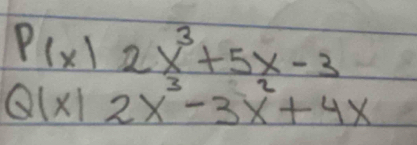 P(x) 2x³+5x-3
Q(x) 2x³-3x²+4x